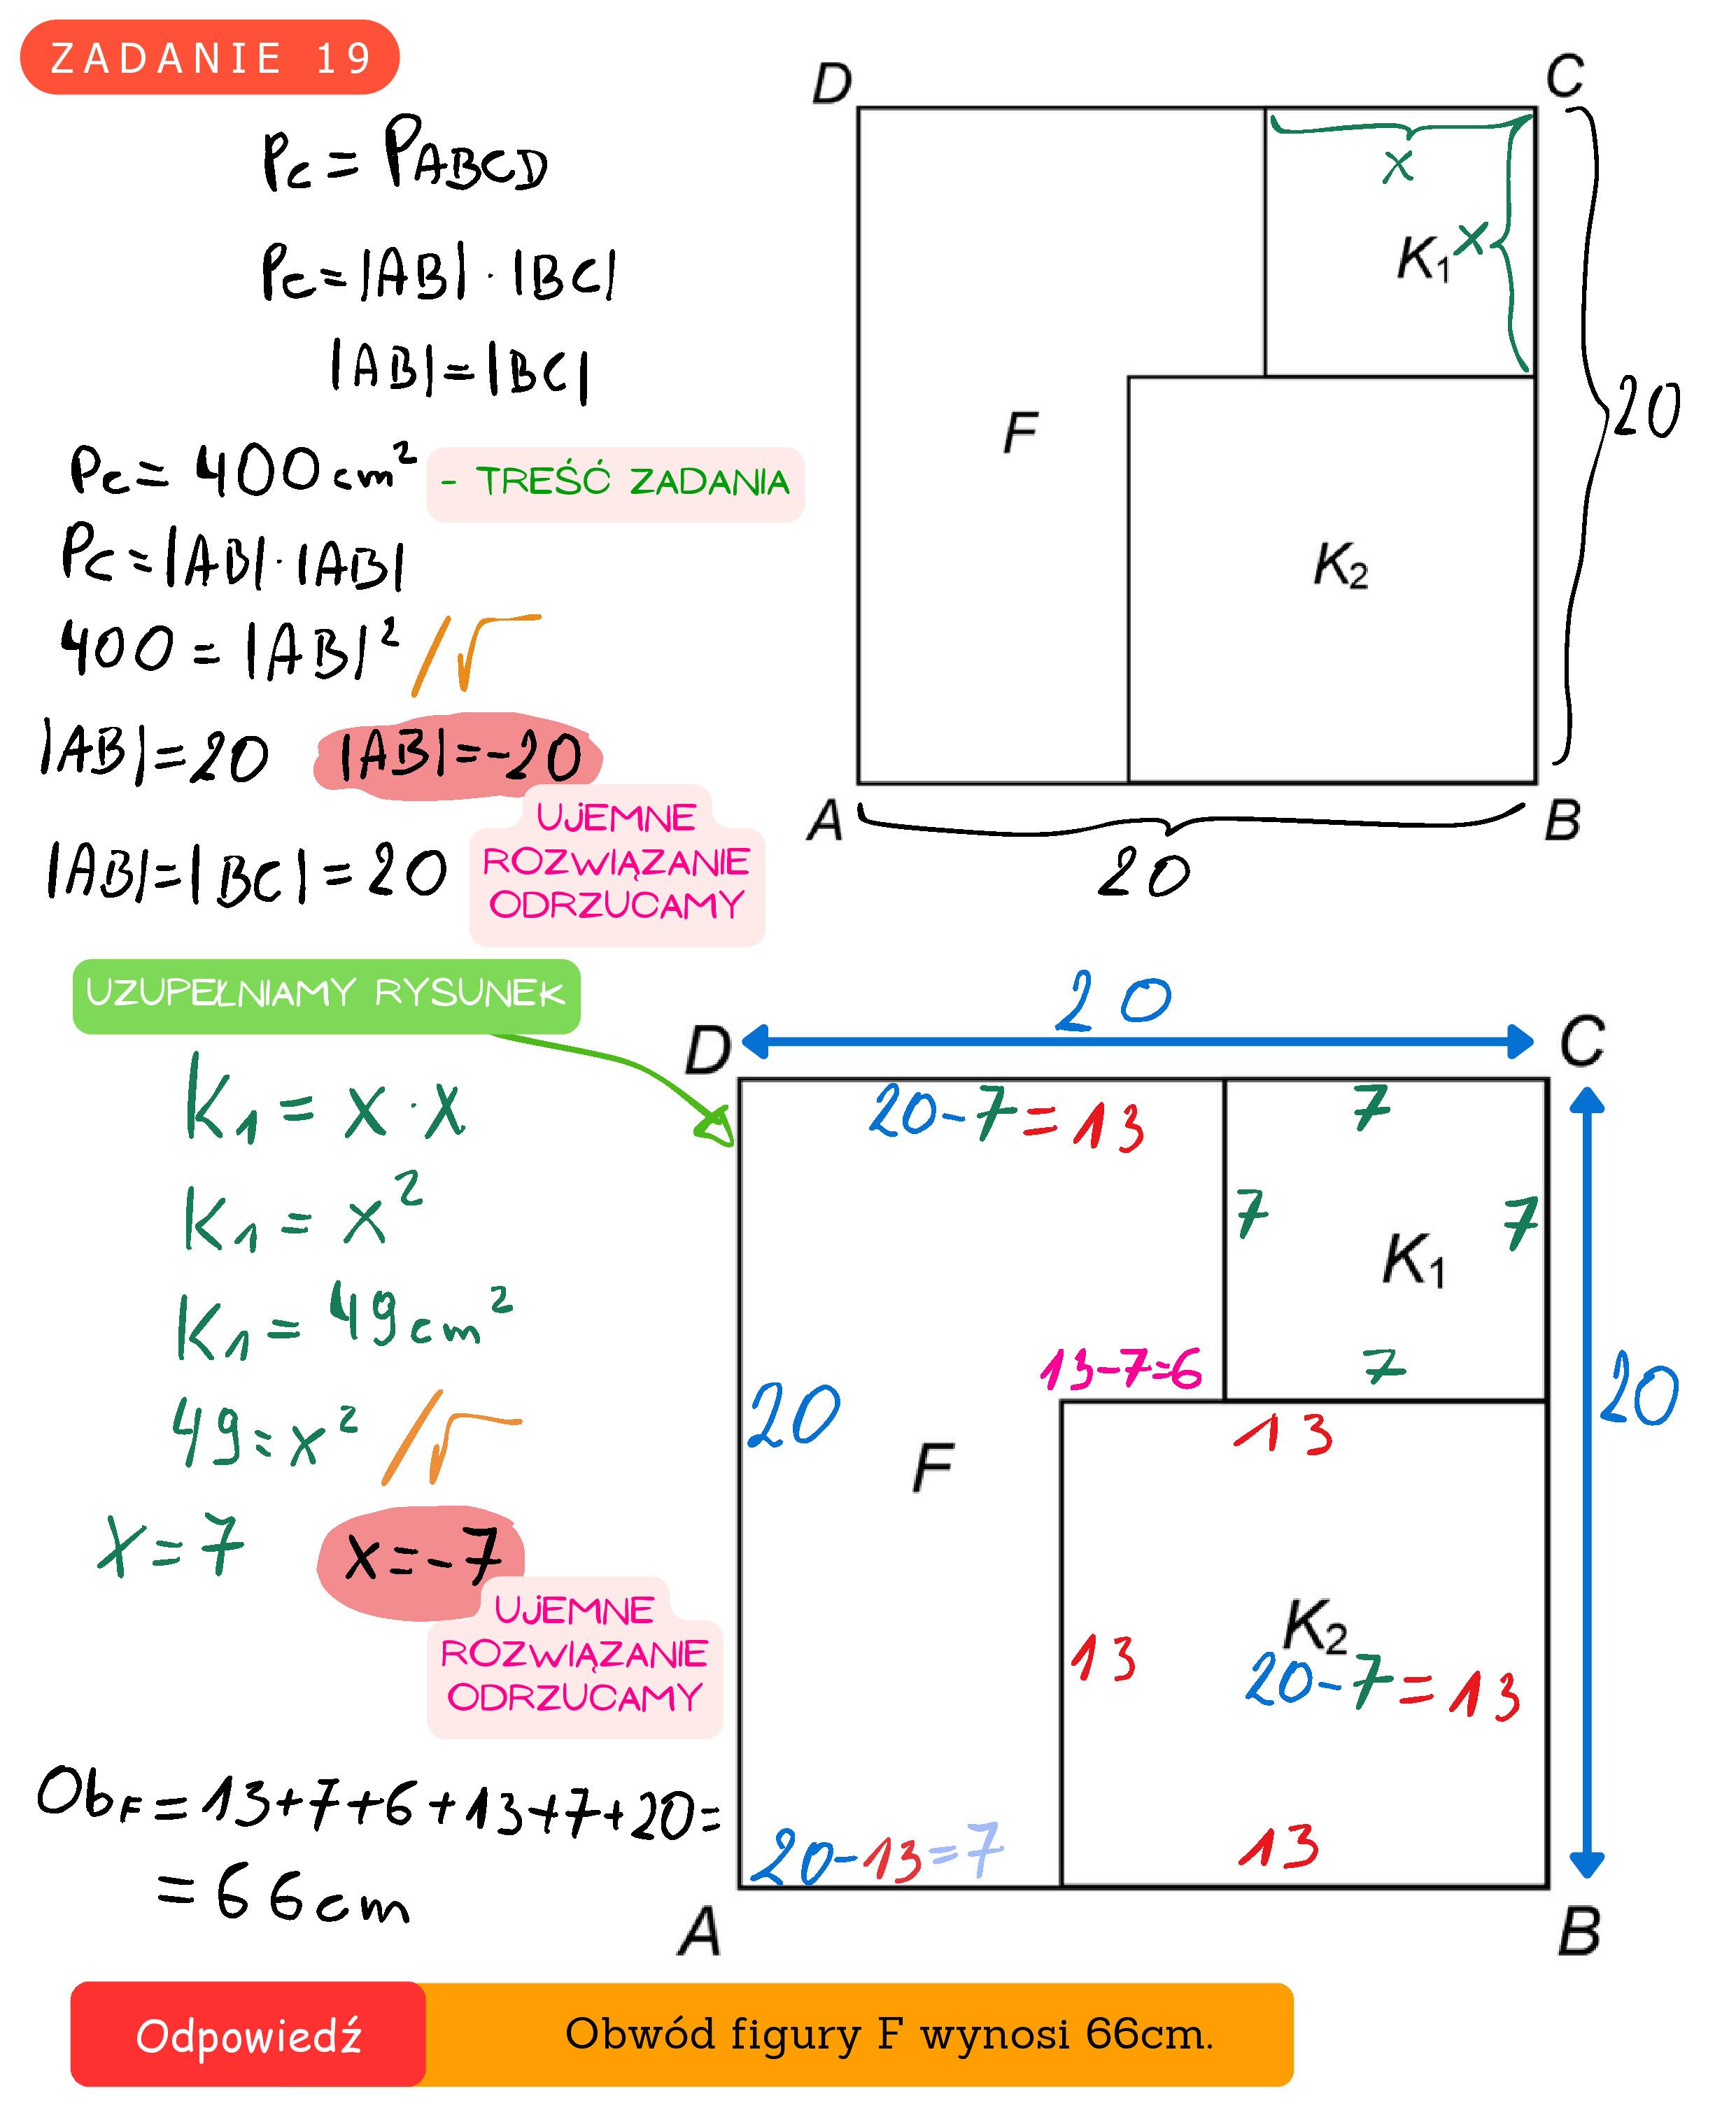 ZADANIE 19
Pc = PABCD
Pc = |AB| · |BC|
|AB| = |BC|
Pc = 400 cm²
- TREŚĆ ZADANIA
Pc = |AB| · |AB|
400 = |AB|² /√
|AB| = 20 |AB| = -20
UJEMNE
ROZWIĄZANIE
ODRZUCAMY
|AB| = |BC| = 20
D
C
x
K₁
x
F
20
K₂
A
B
20
UZUPEŁNIAMY RYSUNEK
K₁ = x · x
K₁ = x²
K₁ = 49 cm²
49 = x² /√
x = 7 x = -7
UJEMNE
ROZWIĄZANIE
ODRZUCAMY
20
D
C
20-7=13
7
7
7
K₁
13-7=6
7
20
20
13
F
K₂
13
20-7=13
20-13=7
13
A
B
ObF = 13+7+6+13+7+20=
= 66 cm
Odpowiedź
Obwód figury F wynosi 66cm.